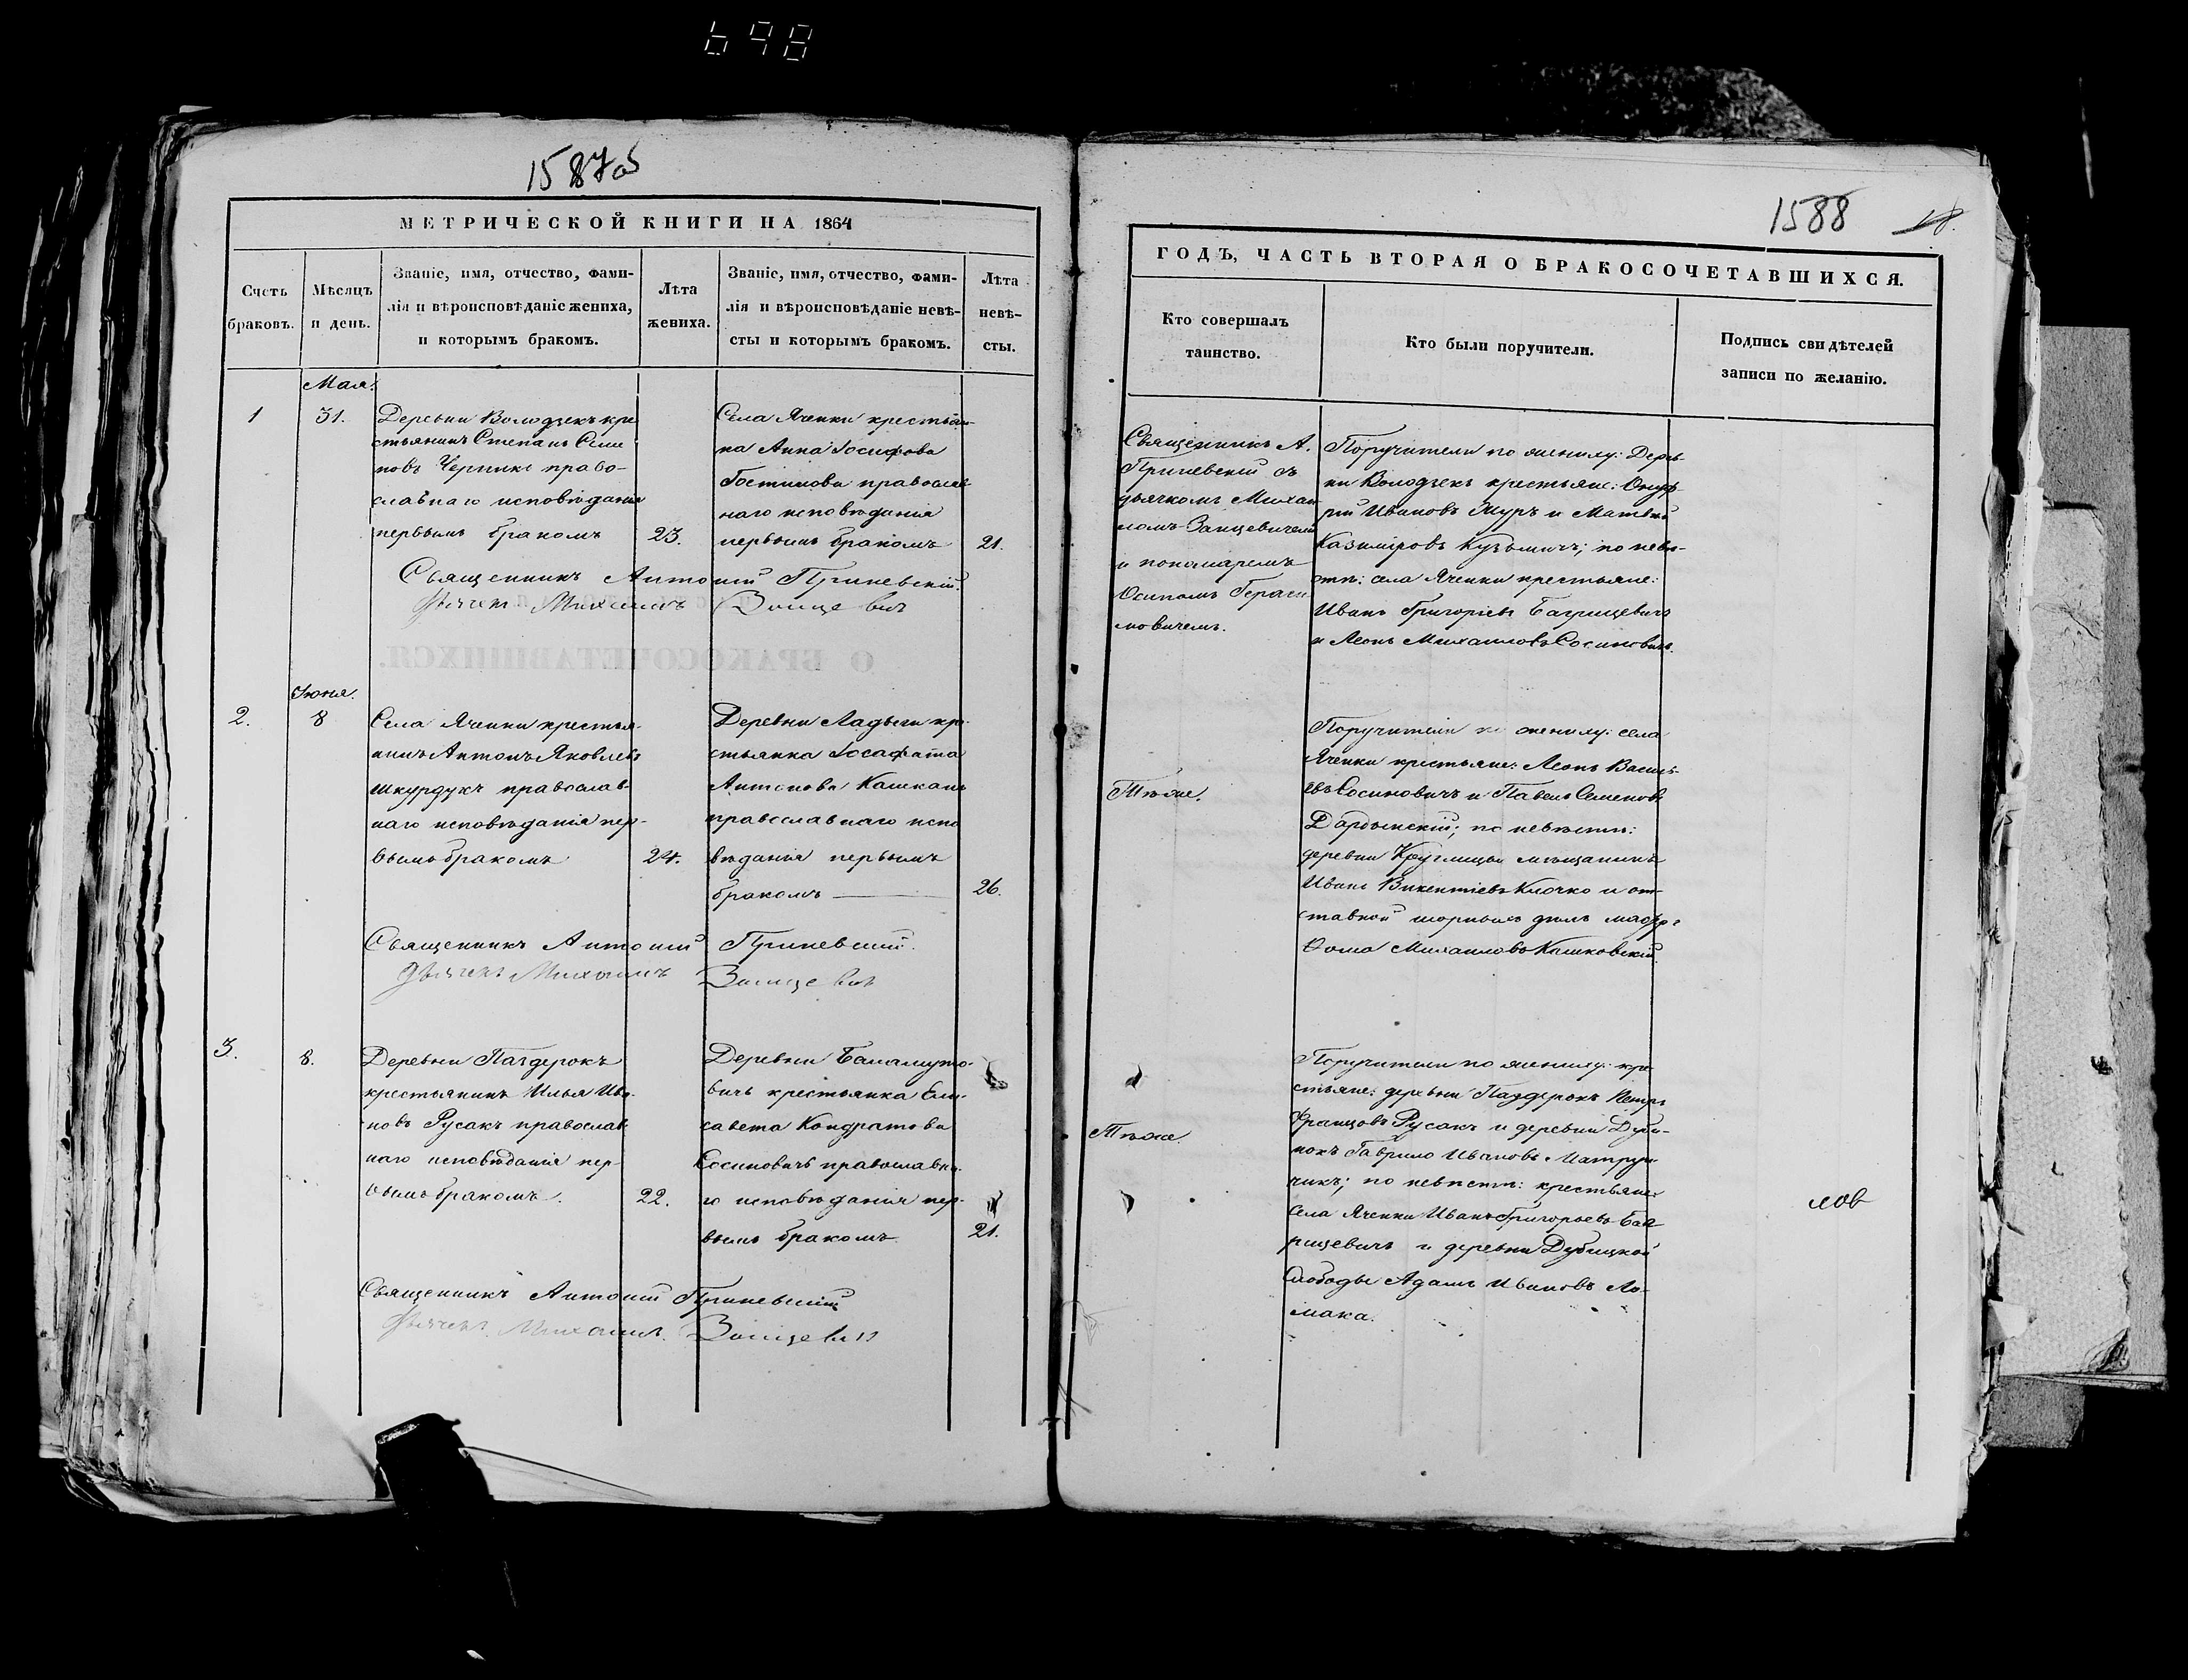 698
1587об
МЕТРИЧЕСКОЙ КНИГИ НА 1864
Счетъ браковъ.
Мѣсяцъ и день.
Званіе, имя, отчество, фами-
лія и вѣроисповѣданіе жениха,
и которымъ бракомъ.
Лѣта жениха.
Званіе, имя, отчество, фами-
лія и вѣроисповѣданіе невѣ-
сты и которымъ бракомъ.
Лѣта невѣ-
сты.
Мая.
1
31.
Деревни Володзекъ кре
стьянинъ Степанъ Семе
новъ Черникъ право-
славнаго исповѣданія
первымъ бракомъ
23.
Села Яченки крестьян-
ка Анна Іосифова
православ
наго исповѣданія
первымъ бракомъ
21.
Священникъ Антоній Гриневскій.
Дьячекъ Михаилъ
Іюня.
2.
8
Села Яченки крестья-
нинъ Антонъ Яковлевъ
Шкурдукъ православ-
наго исповѣданія пер-
вымъ бракомъ
24.
Деревни Ладыги кре-
стьянка Іосафата
Антонова
православнаго испо
вѣданія первымъ
бракомъ
26.
Священникъ Антоній Гриневскій.
Дьячекъ Михаилъ
3.
8.
Деревни Паздерокъ
крестьянинъ Илья Ива-
новъ Русакъ православ
наго исповѣданія пер-
вымъ бракомъ.
22.
Деревни Баламуто-
вичъ крестьянка Ели-
савета Кондратова
Сосиновичъ православна-
го исповѣданія пер-
вымъ бракомъ
21.
Священникъ Антоній Гриневскій
Дьячекъ Михаилъ
1588
ГОДЪ, ЧАСТЬ ВТОРАЯ О БРАКОСОЧЕТАВШИХСЯ.
Кто совершалъ
таинство.
Кто были поручители.
Подпись свидѣтелей
записи по желанію.
Священникъ А.
Гриневскій съ
дьячкомъ Михаи
ломъ
и пономаремъ
Осипомъ Гераси
мовичемъ.
Поручители по жениху: Дерев-
ни Володзекъ крестьяне: Онуф-
рій Ивановъ Журъ и Матвѣй
Казиміровъ Кузьмичъ; по невѣ-
стѣ: села Яченки крестьяне:
Иванъ Григорьевъ Багрицевичъ
и Леонъ Михаиловъ Сосиновичъ.
Тѣже.
Поручители по жениху: села
Яченки крестьяне: Леонъ Василь-
евъ Сосиновичъ и Павелъ Семеновъ
по невѣстѣ:
деревни Круглицы мѣщанинъ
Иванъ Викентіевъ Клочко и от-
ставной
Ѳома Михаиловъ
Тѣже.
Поручители по жениху: кре
стьяне: деревни Паздерокъ Петръ
Францовъ Русакъ и деревни Дуби-
нокъ Гаврило Ивановъ
по невѣстѣ: крестьяне
села Яченки Иванъ Григорьевъ Баг-
рицевичъ и деревни Дубицкой
Слободы Адамъ Ивановъ Ло-
мака.
лов